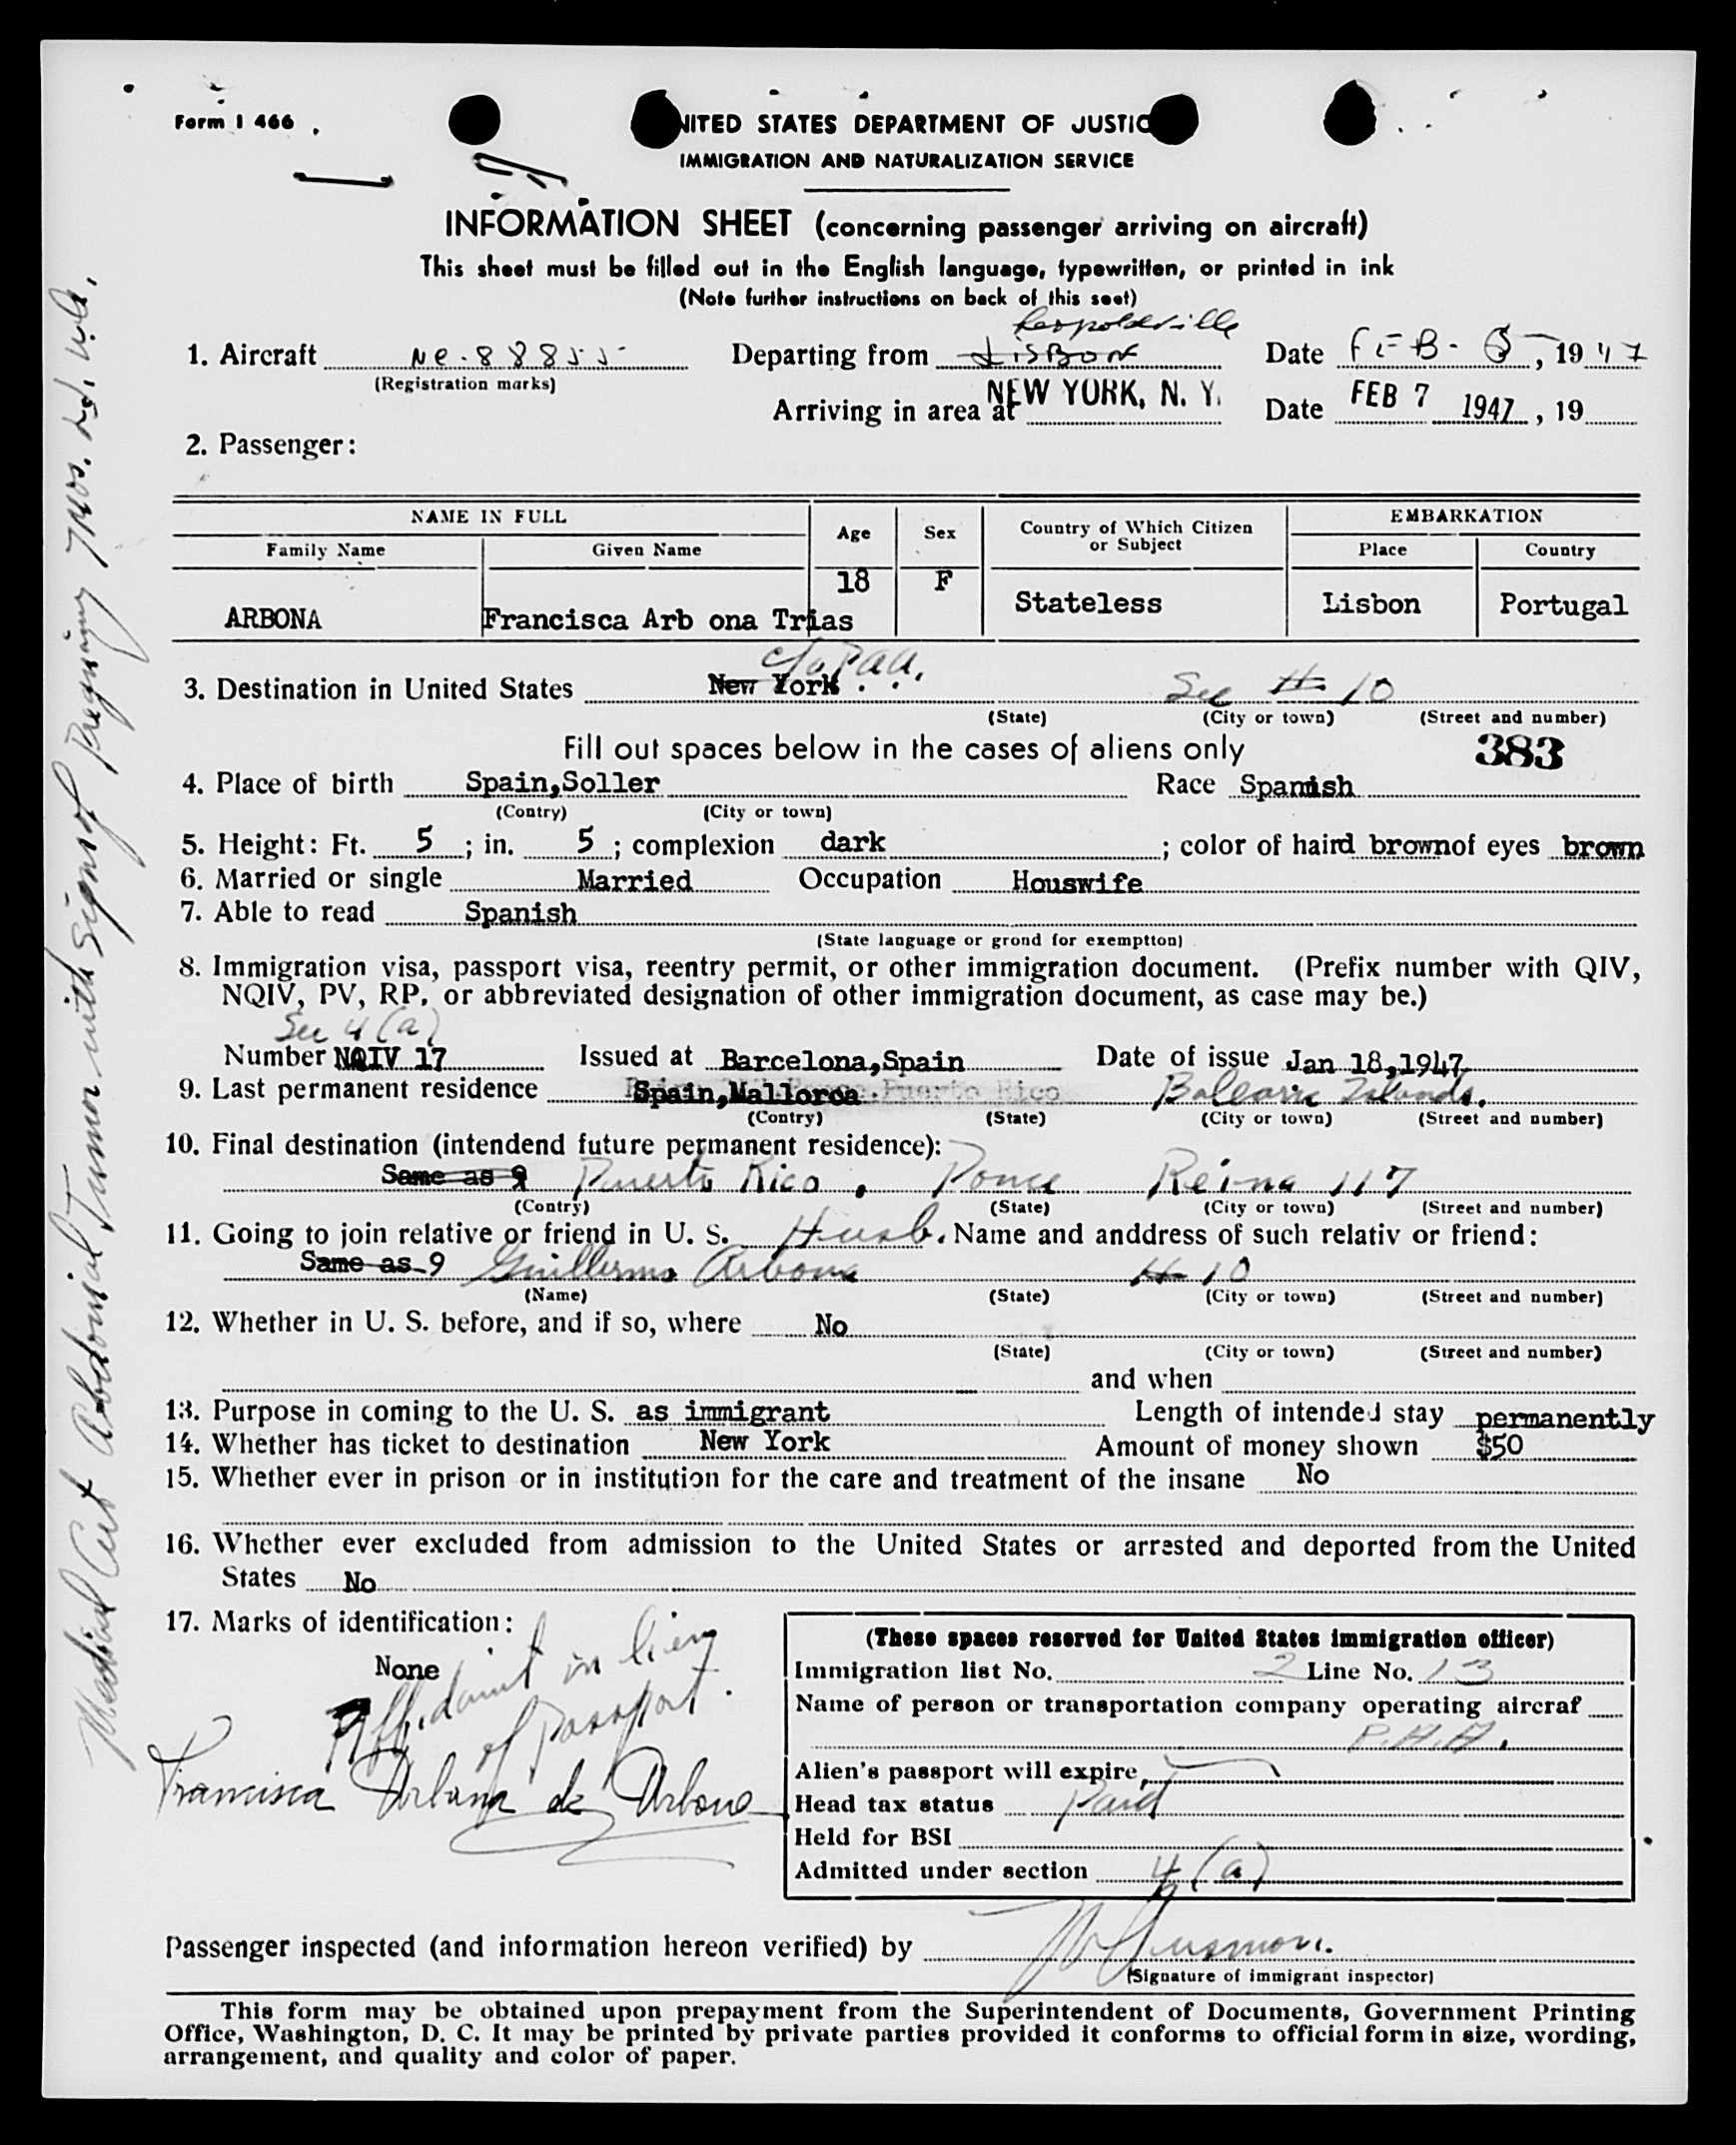 Form I 466
NITED STATES DEPARTMENT OF JUSTIC
IMMIGRATION AND NATURALIZATION SERVICE
INFORMATION SHEET (concerning passenger arriving on aircraft)
This sheet must be filled out in the English language, typewritten, or printed in ink
(Note further instructions on back of this seet)
Leopoldville
1. Aircraft NC-88855 Departing from LISBON Date FEB- 5, 1947
(Registration marks)
Arriving in area at NEW YORK, N. Y. Date FEB 7 1947, 19
2. Passenger:
NAME IN FULL Age Sex Country of Which Citizen or Subject EMBARKATION
Family Name Given Name Place Country
ARBONA Francisca Arb ona Trias 18 F Stateless Lisbon Portugal
c/o Paa.
3. Destination in United States New York See # 10
(State) (City or town) (Street and number)
Fill out spaces below in the cases of aliens only 383
4. Place of birth Spain,Soller Race Spanish
(Contry) (City or town)
5. Height: Ft. 5 ; in. 5 ; complexion dark ; color of haird brownof eyes brown
6. Married or single Married Occupation Houswife
7. Able to read Spanish
(State language or grond for exemption)
8. Immigration visa, passport visa, reentry permit, or other immigration document. (Prefix number with QIV,
NQIV, PV, RP, or abbreviated designation of other immigration document, as case may be.)
Sec 4 (a)
Number NQIV 17 Issued at Barcelona,Spain Date of issue Jan 18,1947
9. Last permanent residence Spain,Mallorca. Puerto Rico Balearic Islands.
(Contry) (State) (City or town) (Street and number)
10. Final destination (intendend future permanent residence):
Same as 9 Puerto Rico, Ponce Reina 117
(Contry) (State) (City or town) (Street and number)
11. Going to join relative or friend in U. S. Husb. Name and anddress of such relativ or friend:
Same as 9 Guillermo Arbona # 10
(Name) (State) (City or town) (Street and number)
12. Whether in U. S. before, and if so, where No
(State) (City or town) (Street and number)
and when
13. Purpose in coming to the U. S. as immigrant Length of intended stay permanently
14. Whether has ticket to destination New York Amount of money shown $50
15. Whether ever in prison or in institution for the care and treatment of the insane No
16. Whether ever excluded from admission to the United States or arrested and deported from the United
States No
17. Marks of identification:
None
Affidavit in lieu
of Passport.
Francisca Arbona de Arbona
(These spaces reserved for United States immigration officer)
Immigration list No. 2 Line No. 13
Name of person or transportation company operating aircraf
P.A.A.
Alien's passport will expire
Head tax status Paid
Held for BSI
Admitted under section 4 (a)
Passenger inspected (and information hereon verified) by
(Signature of immigrant inspector)
This form may be obtained upon prepayment from the Superintendent of Documents, Government Printing
Office, Washington, D. C. It may be printed by private parties provided it conforms to official form in size, wording,
arrangement, and quality and color of paper.
Medical Cert Abdominal Tumor with signs of Pregnancy 7 Mos.